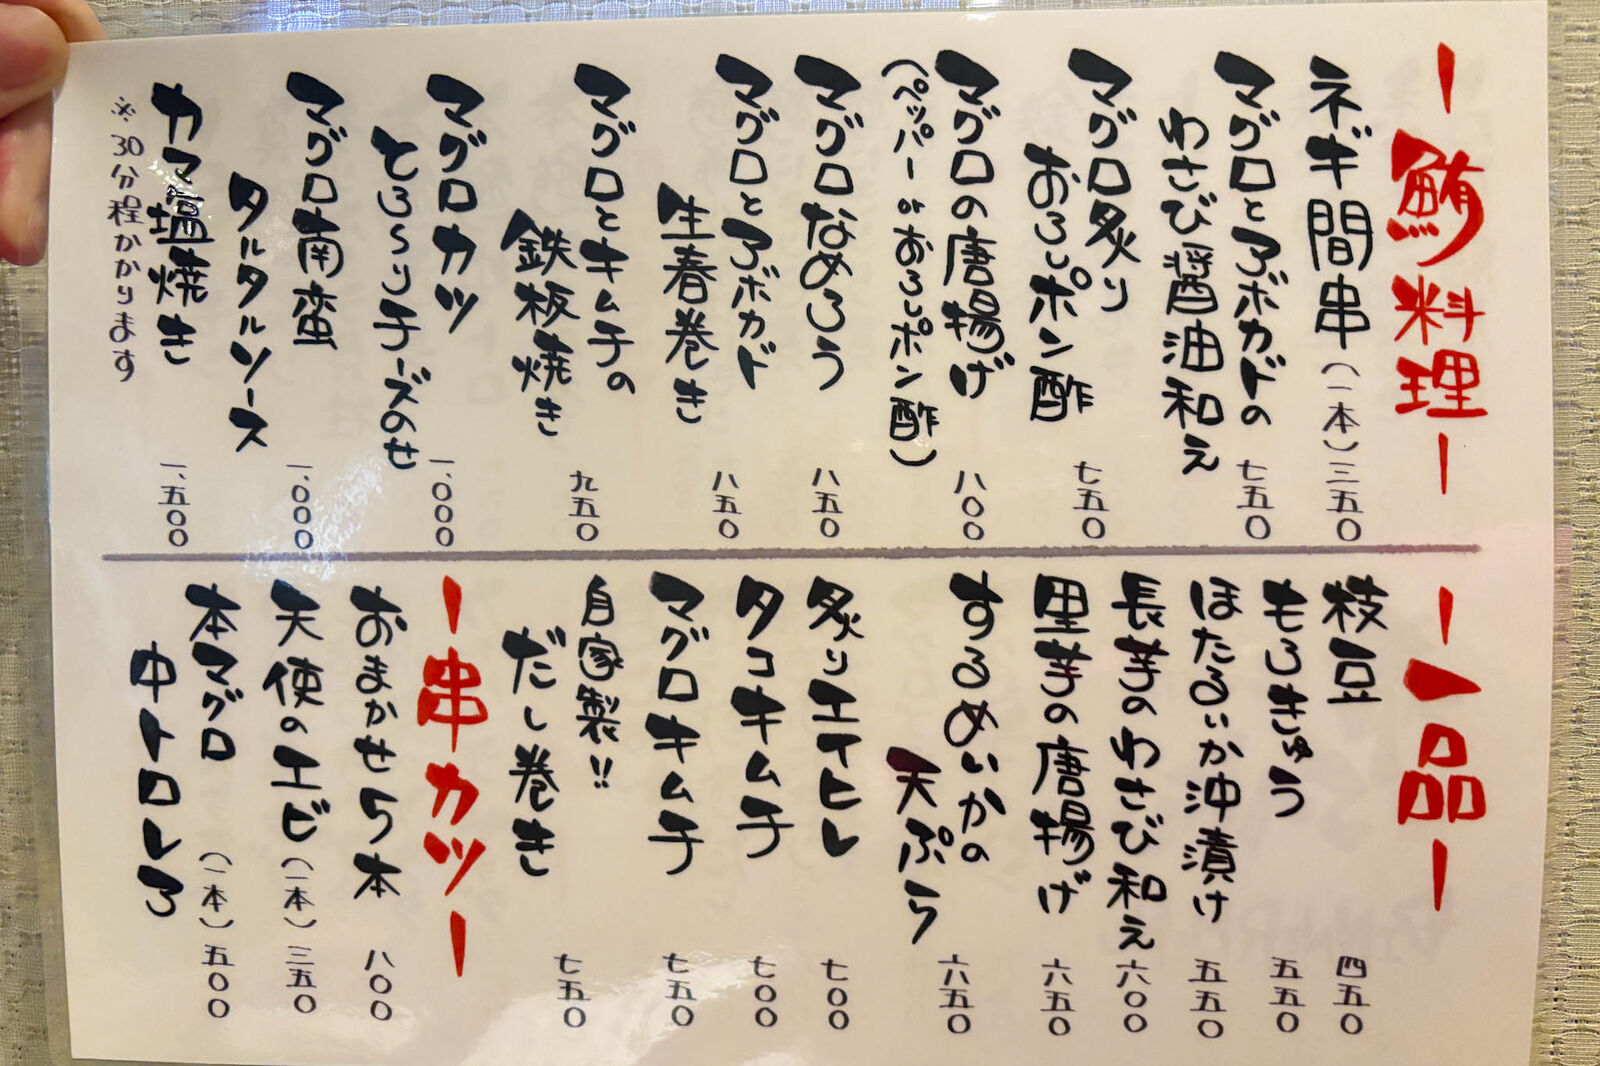 ー鮪料理ー
ネギ間串(一本)三五〇
マグロとアボカドの
わさび醤油和え
七五〇
マグロ炙り
おろしポン酢
七五〇
マグロの唐揚げ
(ペッパーorおろしポン酢)
八〇〇
マグロなめろう
八五〇
マグロとアボカド
生春巻き
八五〇
マグロとキムチの
鉄板焼き
九五〇
マグロカツ
とろ～りチーズのせ
一、〇〇〇
マグロ南蛮
タルタルソース
一、〇〇〇
カマ塩焼き
※30分程かかります
一、五〇〇
ー一品ー
枝豆
四五〇
もろきゅう
五五〇
ほたるいか沖漬け
五五〇
長芋のわさび和え
六〇〇
里芋の唐揚げ
六五〇
するめいかの
天ぷら
六五〇
炙りエイヒレ
七〇〇
タコキムチ
七〇〇
マグロキムチ
七五〇
自家製!!
だし巻き
七五〇
ー串カツー
おまかせ5本
八〇〇
天使のエビ(一本)三五〇
本マグロ
中トロレア
(一本)五〇〇